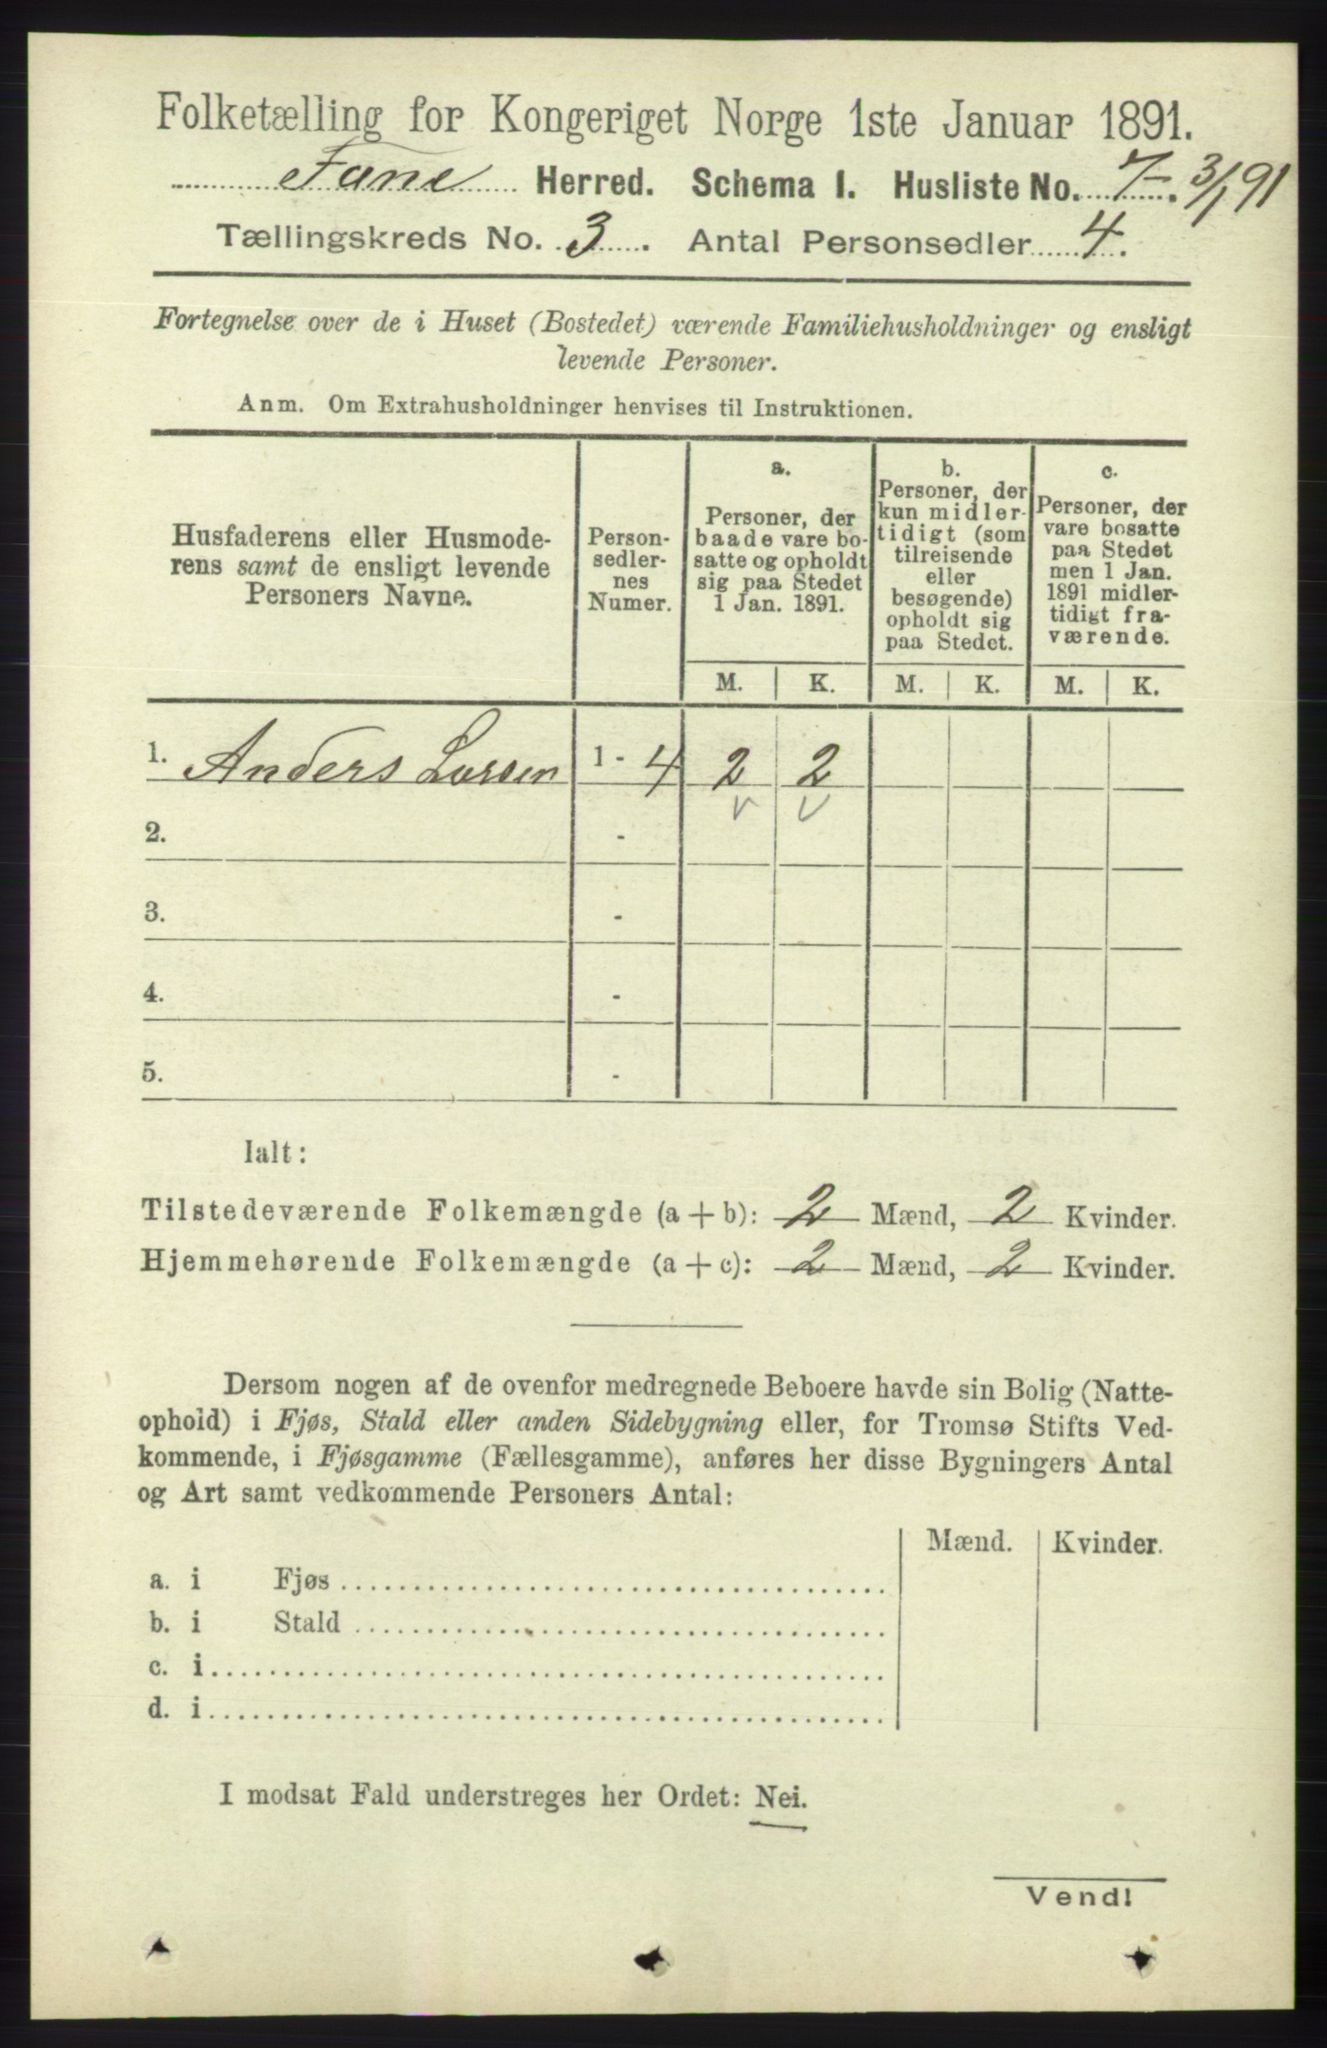 Folketælling for Kongeriget Norge 1ste Januar 1891.
Fane Herred. Schema I. Husliste No. 7. 3/1 91
Tællingskreds No. 3. Antal Personsedler 4.
Fortegnelse over de i Huset (Bostedet) værende Familiehusholdninger og ensligt
levende Personer.
Anm. Om Extrahusholdninger henvises til Instruktionen.
Husfaderens eller Husmode-
rens samt de ensligt levende
Personers Navne.
Person-
sedler-
nes
Numer.
a.
Personer, der
baade vare bo-
satte og opholdt
sig paa Stedet
1 Jan. 1891.
b.
Personer, der
kun midler-
tidigt (som
tilreisende
eller
besøgende)
opholdt sig
paa Stedet.
c.
Personer, der
vare bosatte
paa Stedet
men 1 Jan.
1891 midler-
tidigt fra-
værende.
M. K. M. K. M. K.
1. Anders Larsen 1 - 4 2 2
2. -
3. -
4. -
5. -
Ialt:
Tilstedeværende Folkemængde (a + b): 2 Mænd, 2 Kvinder.
Hjemmehørende Folkemængde (a + c): 2 Mænd, 2 Kvinder.
Dersom nogen af de ovenfor medregnede Beboere havde sin Bolig (Natte-
ophold) i Fjøs, Stald eller anden Sidebygning eller, for Tromsø Stifts Ved-
kommende, i Fjøsgamme (Fællesgamme), anføres her disse Bygningers Antal
og Art samt vedkommende Personers Antal:
Mænd. Kvinder.
a. i Fjøs
b. i Stald
c. i
d. i
I modsat Fald understreges her Ordet: Nei.
Vend!